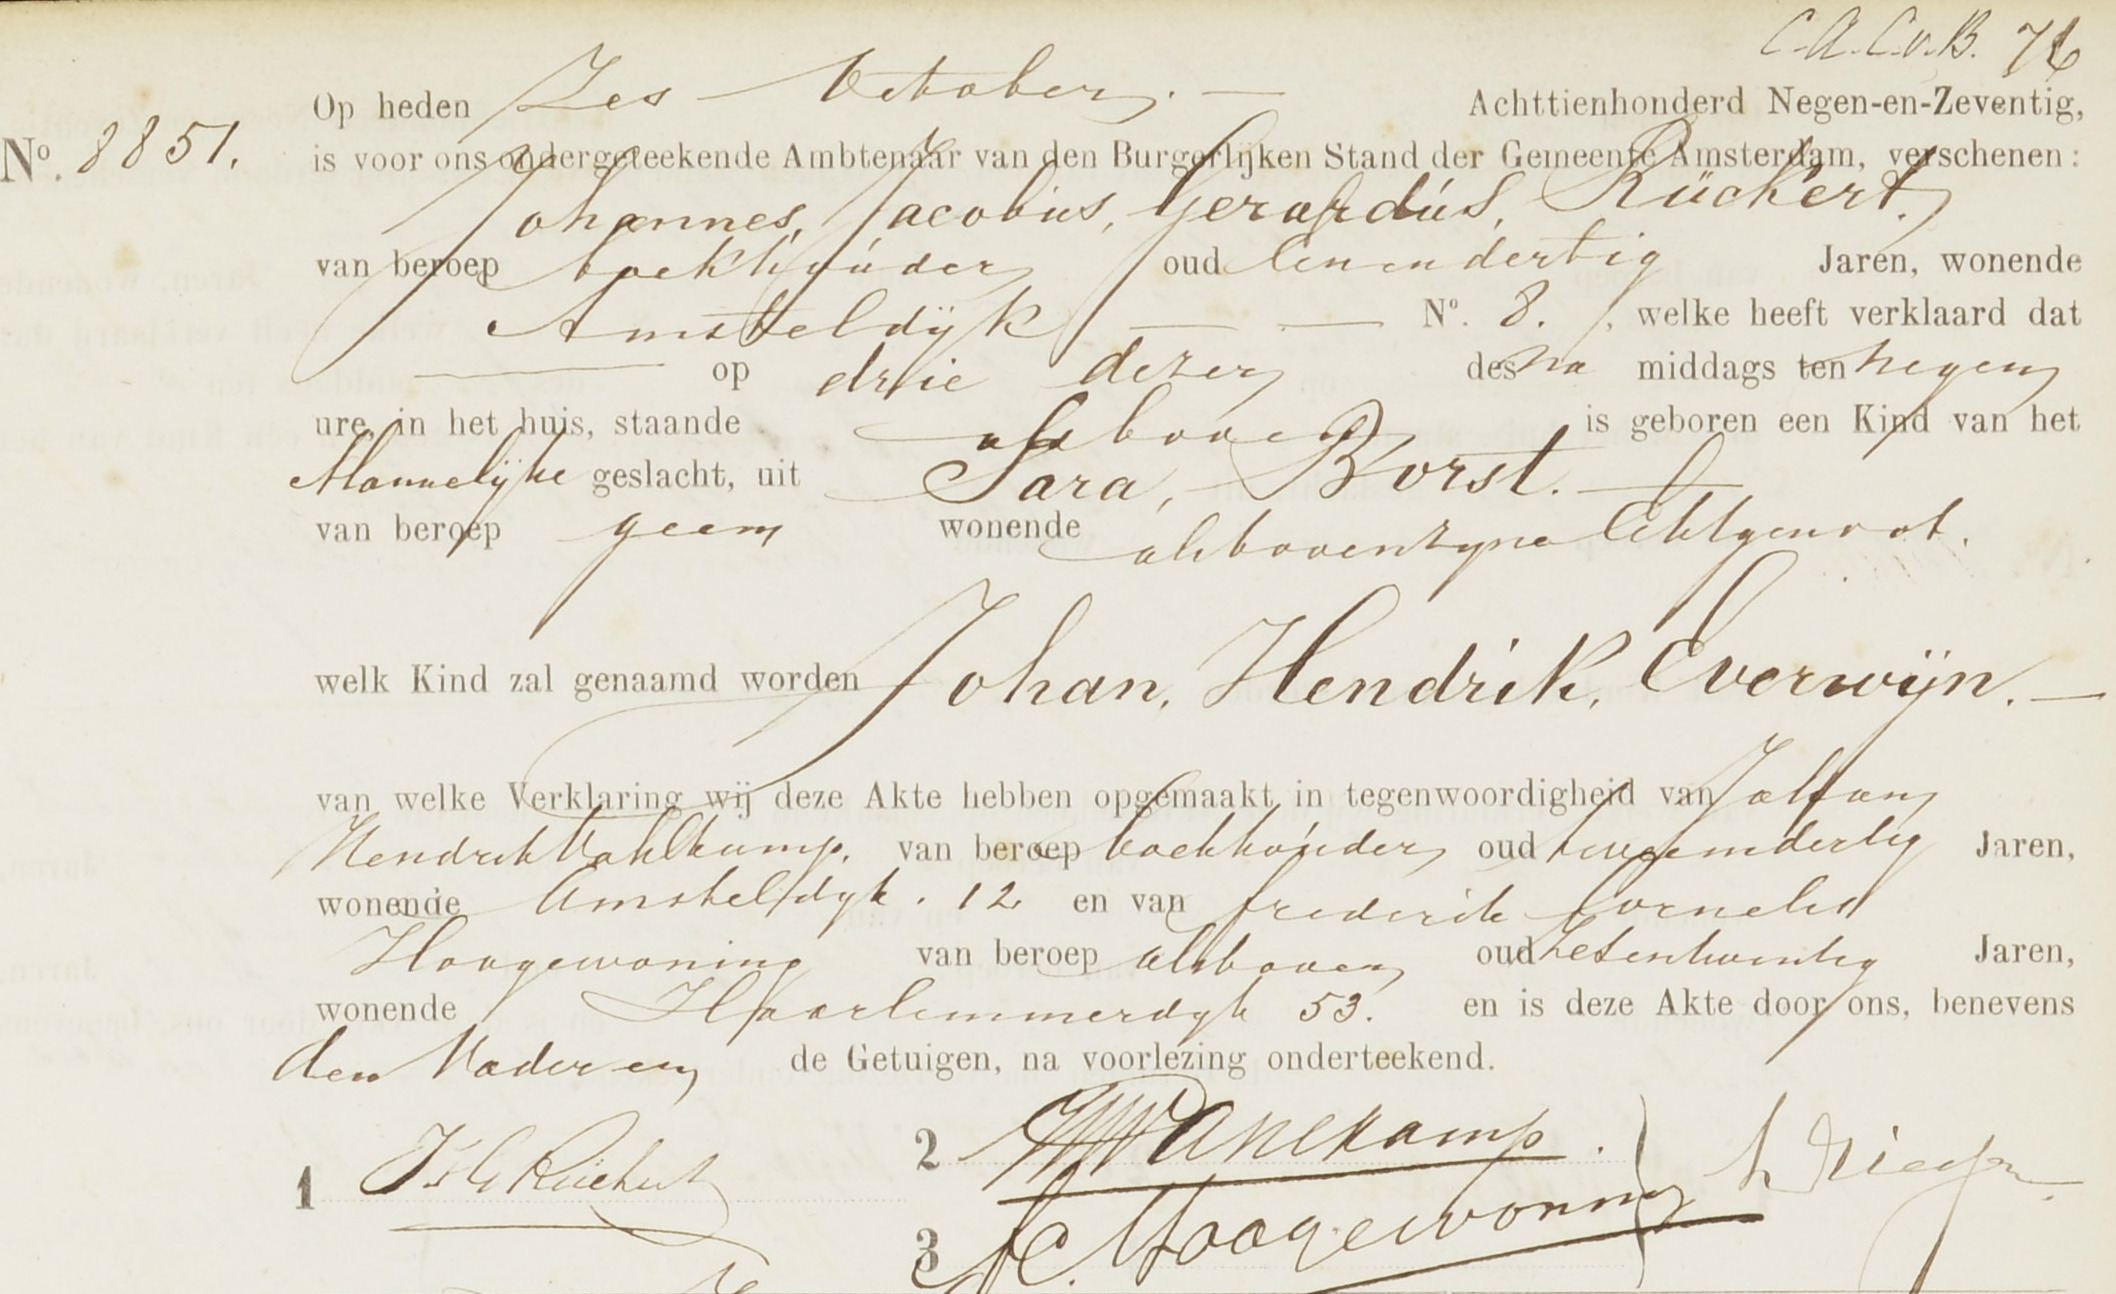 C.A.C.v.B. 76
Op heden Zes October. Achttienhonderd Negen-en-Zeventig,
No. 8851. is voor ons ondergeteekende Ambtenaar van den Burgerlijken Stand der Gemeente Amsterdam, verschenen:
Johannes, Jacobus, Gerardus, Rückert,
van beroep boekhouder oud Eenendertig Jaren, wonende
Amsteldijk No. 8. , welke heeft verklaard dat
op drie dezer des na middags ten negen
ure, in het huis, staande alsboven is geboren een Kind van het
Mannelijke geslacht, uit Sara, Borst.
van beroep geen wonende alsboven zyne Echtgenoot.
welk Kind zal genaamd worden Johan, Hendrik, Everwijn.
van welke Verklaring wij deze Akte hebben opgemaakt in tegenwoordigheid van Johan
Hendrik van beroep boekhouder oud tweeendertig Jaren,
wonende Amsteldyk. 12 en van frederik Cornelis
Hoogewoning van beroep alsboven oud zesentwintig Jaren,
wonende Haarlemmerdyk 53. en is deze Akte door ons, benevens
den Vader en de Getuigen, na voorlezing onderteekend.
1 J.J.G. Rückert
2
3 F.C. Hoogewoning